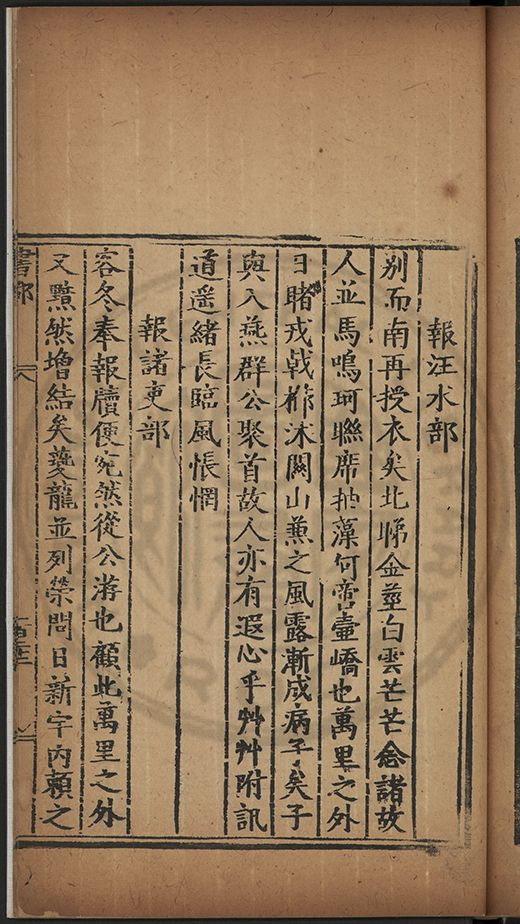 報汪水部
別而南再授衣矣北睇金莖白雲芒芒念諸故
人並馬鳴珂聯席抽藻何啻壷嶠也萬里之外
日睹戎戟櫛沐關山蒹之風露漸成病子矣子
與入燕群公聚首故人亦有遐心乎艸艸附訊
道遥緒長臨風悵惘
報諸吏部
容冬奉報牘便宛然從公游也顧此萬里之外
又黯然增結矣夔龍並列榮問日新宇内賴之
書部